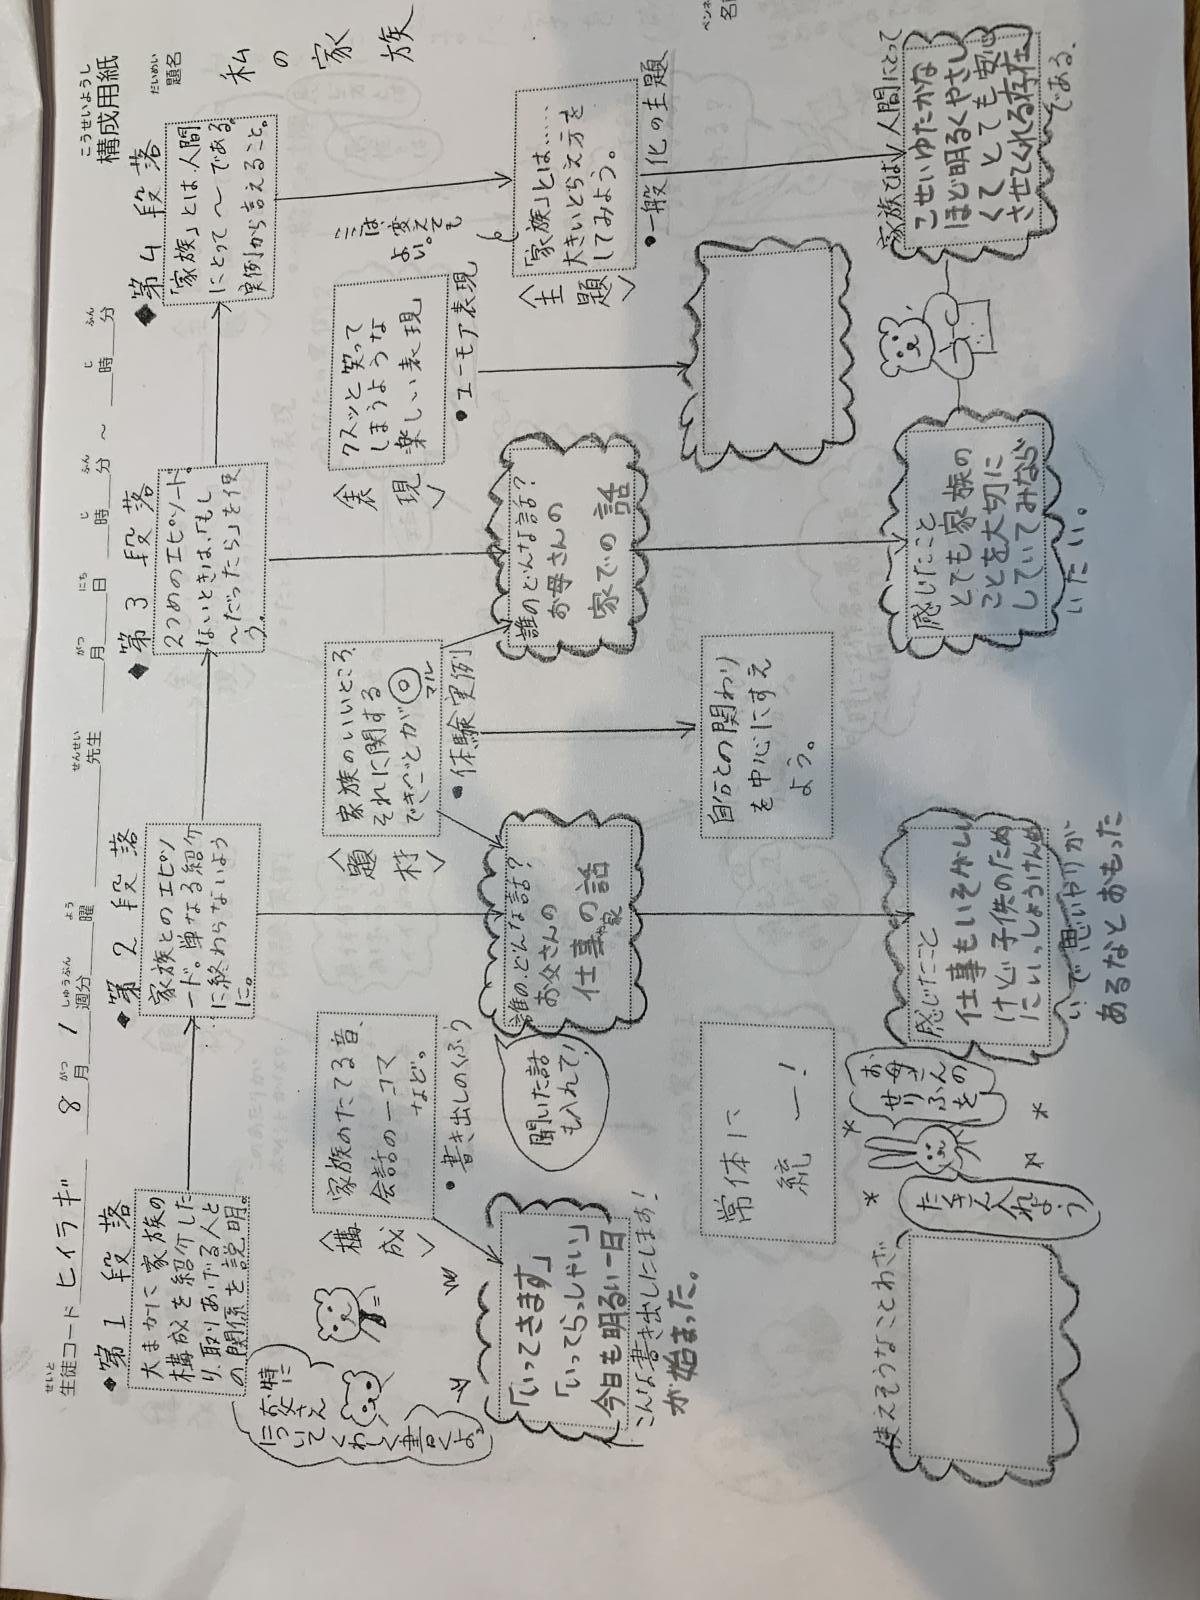 こうせいようし
構成用紙
だいめい
題名
私の家族
せいと
生徒コード ヒイラギ
8月1週分
がつ
しゅうぶん
よう
曜
せんせい
先生
がつ
月
にち
日
じ
時
ふん
分
～
じ
時
ふん
分
◆第1段落
大まかに家族の
構成を紹介した
り、取りあげる人と
の関係を説明。
特に
お父さん
について
くわしく
書くよ。
〈構成〉
家族のたてる音、
会話の一コマ
など。
・書き出しのくふう
「いってきます」
「いってらっしゃい」
今日も明るい一日
が始まった。
こんな書き出しにします！
常体に
統一！
使えそうなことわざ
◆第2段落
家族とのエピソ
ード。単なる紹介
に終わらないよう
に。
〈題材〉
家族のいいところ、
それに関する
できごとが◎
マル
・体験実例
誰のどんな話？
お父さんの
仕事や家の話
聞いた話
も入れて！
自分との関わり
を中心にすえ
よう。
感じたこと
仕事もいそがしい
けど子供のため
にいっしょうけんめ
いで思いやりが
あるなとおもった
お母さんの
せりふを
たくさん
入れよう
◆第3段落
2つめのエピソード。
ないときは、「もし
～だったら」を使
う。
〈表現〉
クスッと笑って
しまうような
楽しい表現
・ユーモア表現
誰のどんな話？
お母さんの
家での話
感じたこと
とても家族の
ことを大切に
していてみなら
いたい。
◆第4段落
「家族」とは、人間
にとって～である。
実例から言えること。
ここは
変えても
よい。
〈主題〉
「家族」とは……
大きいとらえ方を
してみよう。
・一般化の主題
家族とは人間にとって
こせいゆたかな
ほど明るくやさし
くてとても安心
させてくれる存在
である。